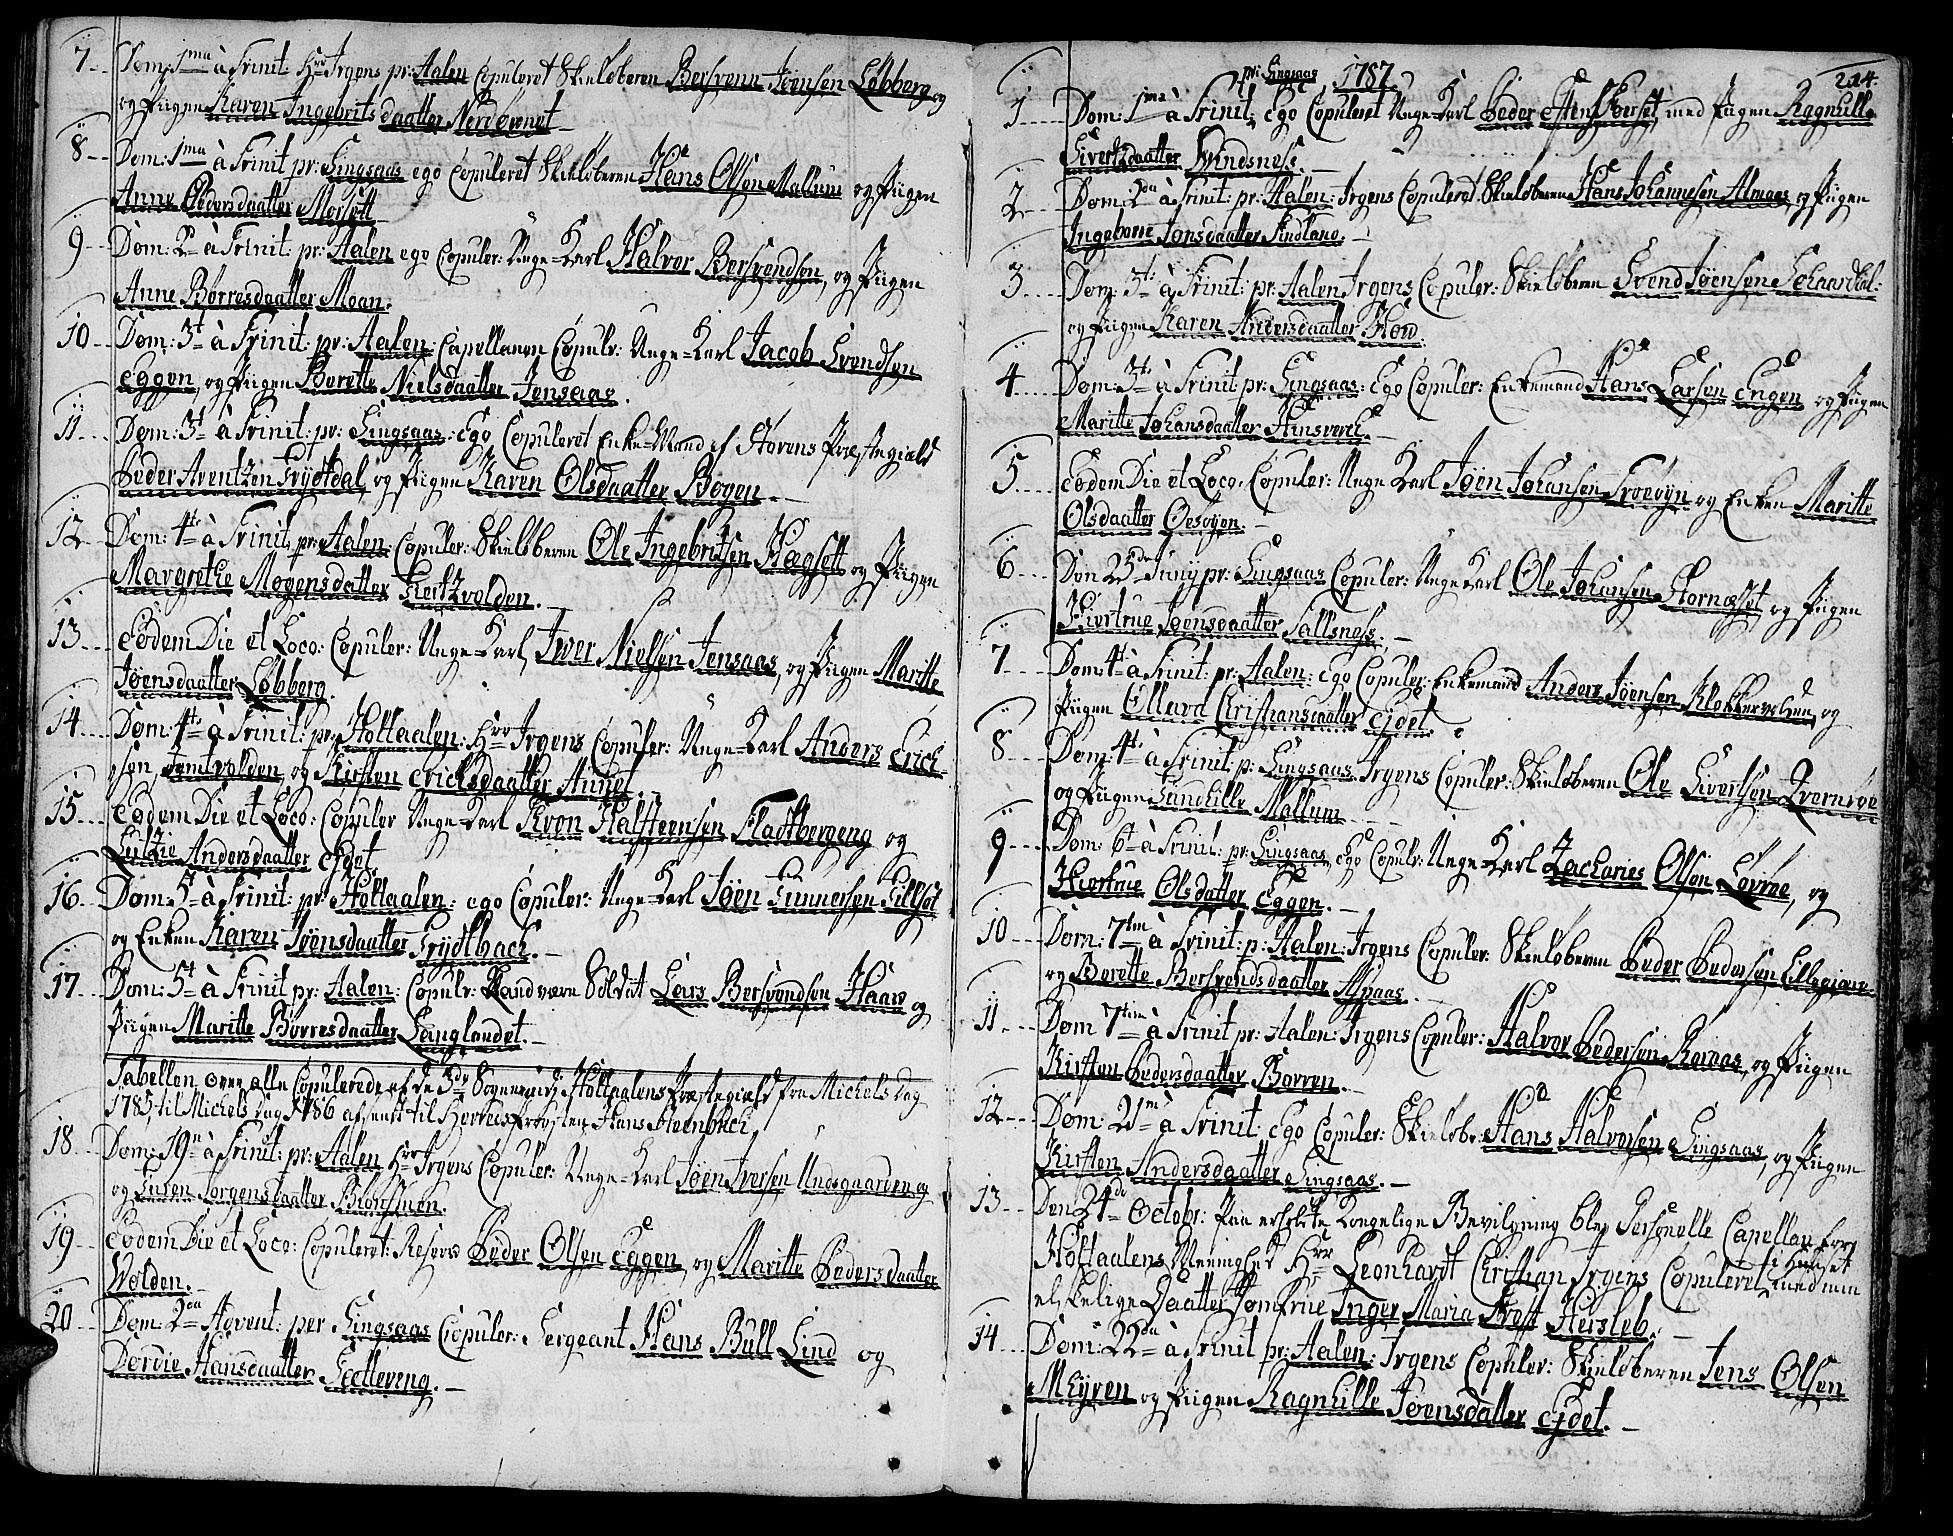 7 Dom: 1ma à Trinit: Hrr Irgens pr: Aalen Copuleret Skieløberen Bersvenn Jønsen Løbberg og
og Piigen Karen Ingebrits daatter Nerdøvnet
8 Dom: 1ma à Trinit pr: Singsaas ego Copuleret Skieløberen Hans Olsen Mallum og Piigen
Anne Pedersdaatter Morsett
9 Dom: 2 à Trinit: pr: Aalen ego Copuler: Unge=Karl Halvor Bersvendsen, og Piigen
Anne Børresdaatter Moan.
10 Dom: 3t à Trinit: pr: Aalen: Capellanen Copulr: Unge=Karl Jacob Svendsen
Eggen, og Piigen Berette Nielsdaatter Jensaas.
11 Dom: 3t à Trinit: pr: Singsaas: Ego Copuleret Enke-Mand af Størens Præstegield
Peder Arentzen Frydtdal, og Piigen Karen Olsdaatter Bogen.
12 Dom: 4te à Trinit pr: Aalen: Copuler: Skieløberen Ole Ingebritsen Hægsett og Piigen
Margrethe Mogensdatter Hertzvolden.
13 Eodem Die et Loco: Copuler: Unge=Karl, Iver Nielsen Jensaas, og Piigen Maritte
Jøensdaatter Løbberg.
14 Dom: 4te à Trinit: pr: Holtaalen: Hrr Irgens Copuler: Unge=Karl Anders Erich-
sen, Tamtvolden, og Kirsten Erichsdaatter Aunet.
15 Eodem Die et Loco: Copuler Unge=Karl Svon Halsteensen Fladtbergeng og
Siltzie Andersdaatter Ejdet.
16 Dom: 5t à Trinit: pr: Holtaalen: ego Copuler: Unge=Karl Jøen Gunnersen Gillset
og Enken Karen Jøensdaatter Grydtback.
17 Dom: 5t à Trinit pr: Aalen: Copulr: Landværn Soldat Lars Bersvendsen Haaw og
Piigen Maritte Børresdaatter Langlandet.
Tabellen over alle Copulerede af de 3de Sogner udj Holtaalens Præstegield fra Michels Dag
1785, til Michels Dag 1786 afsendt til Herr Provsten, Hans Steenbuch,
18 Dom: 19n à Trinit: pr: Aalen Hrr Irgens Copuler: Unge=Karl Jøen Iversen Undsgaarden og
og Guren Jørgensdaatter
19 Eodem Die et Loco: Copuleret: Reserv Peder Olsen Eggen, og Maritte Pedersdaatter
Wolden.
20 Dom: 2da Advent: per Singsaas Copuler: Sergeant Hans Bull Lind og
Dordie Hansdaatter Fætteveng.
214.
pr: Singsaas 1787.
1 Dom: 1ma à Trinit, Ego Copuleret Unge=Karl Peder Estensen med Piigen Ragnhille
Sivertsdaatter Svindsness.
2 Dom: 2da à Trinit: pr: Aalen: Irgens Copuleret Skieløberen Hans Johannesen Almaas, og Piigen
Ingeborre Jonsdaatter Findland.
3 Dom: 3t à Trinit: pr: Aalen Irgens Copuler: Skieløberen Svend Jøensen
og Piigen Karen Andersdaatter How.
4 Dom: 3te à Trinit pr: Singsaas: Ego Copuler: Enkemand Hans Larsen Engen og Piigen
Maritte Johansdaatter Hinsverck.
5 Eodem Die et Loco, Copuler: Unge Karl Jøen Johansen Troeøyn og Enken Maritte
Olsdaatter Øesøyen.
6 Den 25de Junij pr: Singsaas Copuler: Unge Karl Ole Johansen Stornæset, og Piigen
Kiertrue Jøensdaatter Sallsness.
7 Dom: 4t à Trinit: pr: Aalen: Ego Copuler: Enkemand Anders Jøensen Klokkervolden, og
Piigen Ollava Christiansdaatter Ejdet.
8 Dom: 4te à Trinit: p: Singsaas Irgens Copuler: Skieløberen Ole Sivertsen Qvernrøe
og Piigen Gundille Mallum
9 Dom: 6t à Trinit: pr: Singsaas, Ego Copulr: Unge Karl Zacharies Olsen Løvrøe, og
Kiertrue Olsdatter Eggen.
10 Dom: 7tim à Trinit: p: Aalen: Irgens Copuler: Skieløberen Peder Pedersen
og Berette Bersvendsdaatter Aspaas.
11 Dom 7tim à Trinit pr: Aalen: Irgens Copuler: Halvor Pedersen Reitaas, og Piigen
Kirsten Pedersdaatter Borren.
12 Dom: 21m à Trinit: Ego Copuler: Skieløbr: Hans Halvorsen Singsaas, og Piigen
Kirsten Andersdaatter Singsaas.
13 Den 24de Octobr: Paa erholdte Kongelige Bevilgning blev Personelle Capellan for
Holtaalens Meenighed Hrr Leonhardt Christian Irgens Copuleret i Huuset med min
elskelige Daatter Jomfrue Inger Maria Frost Hersleb.
14 Dom: 22da à Trinit pr: Aalen: Irgens Copuler: Skieløberen Jens Olsen
Mhyren og Piigen Ragnhille Jøensdatter Ejdet.